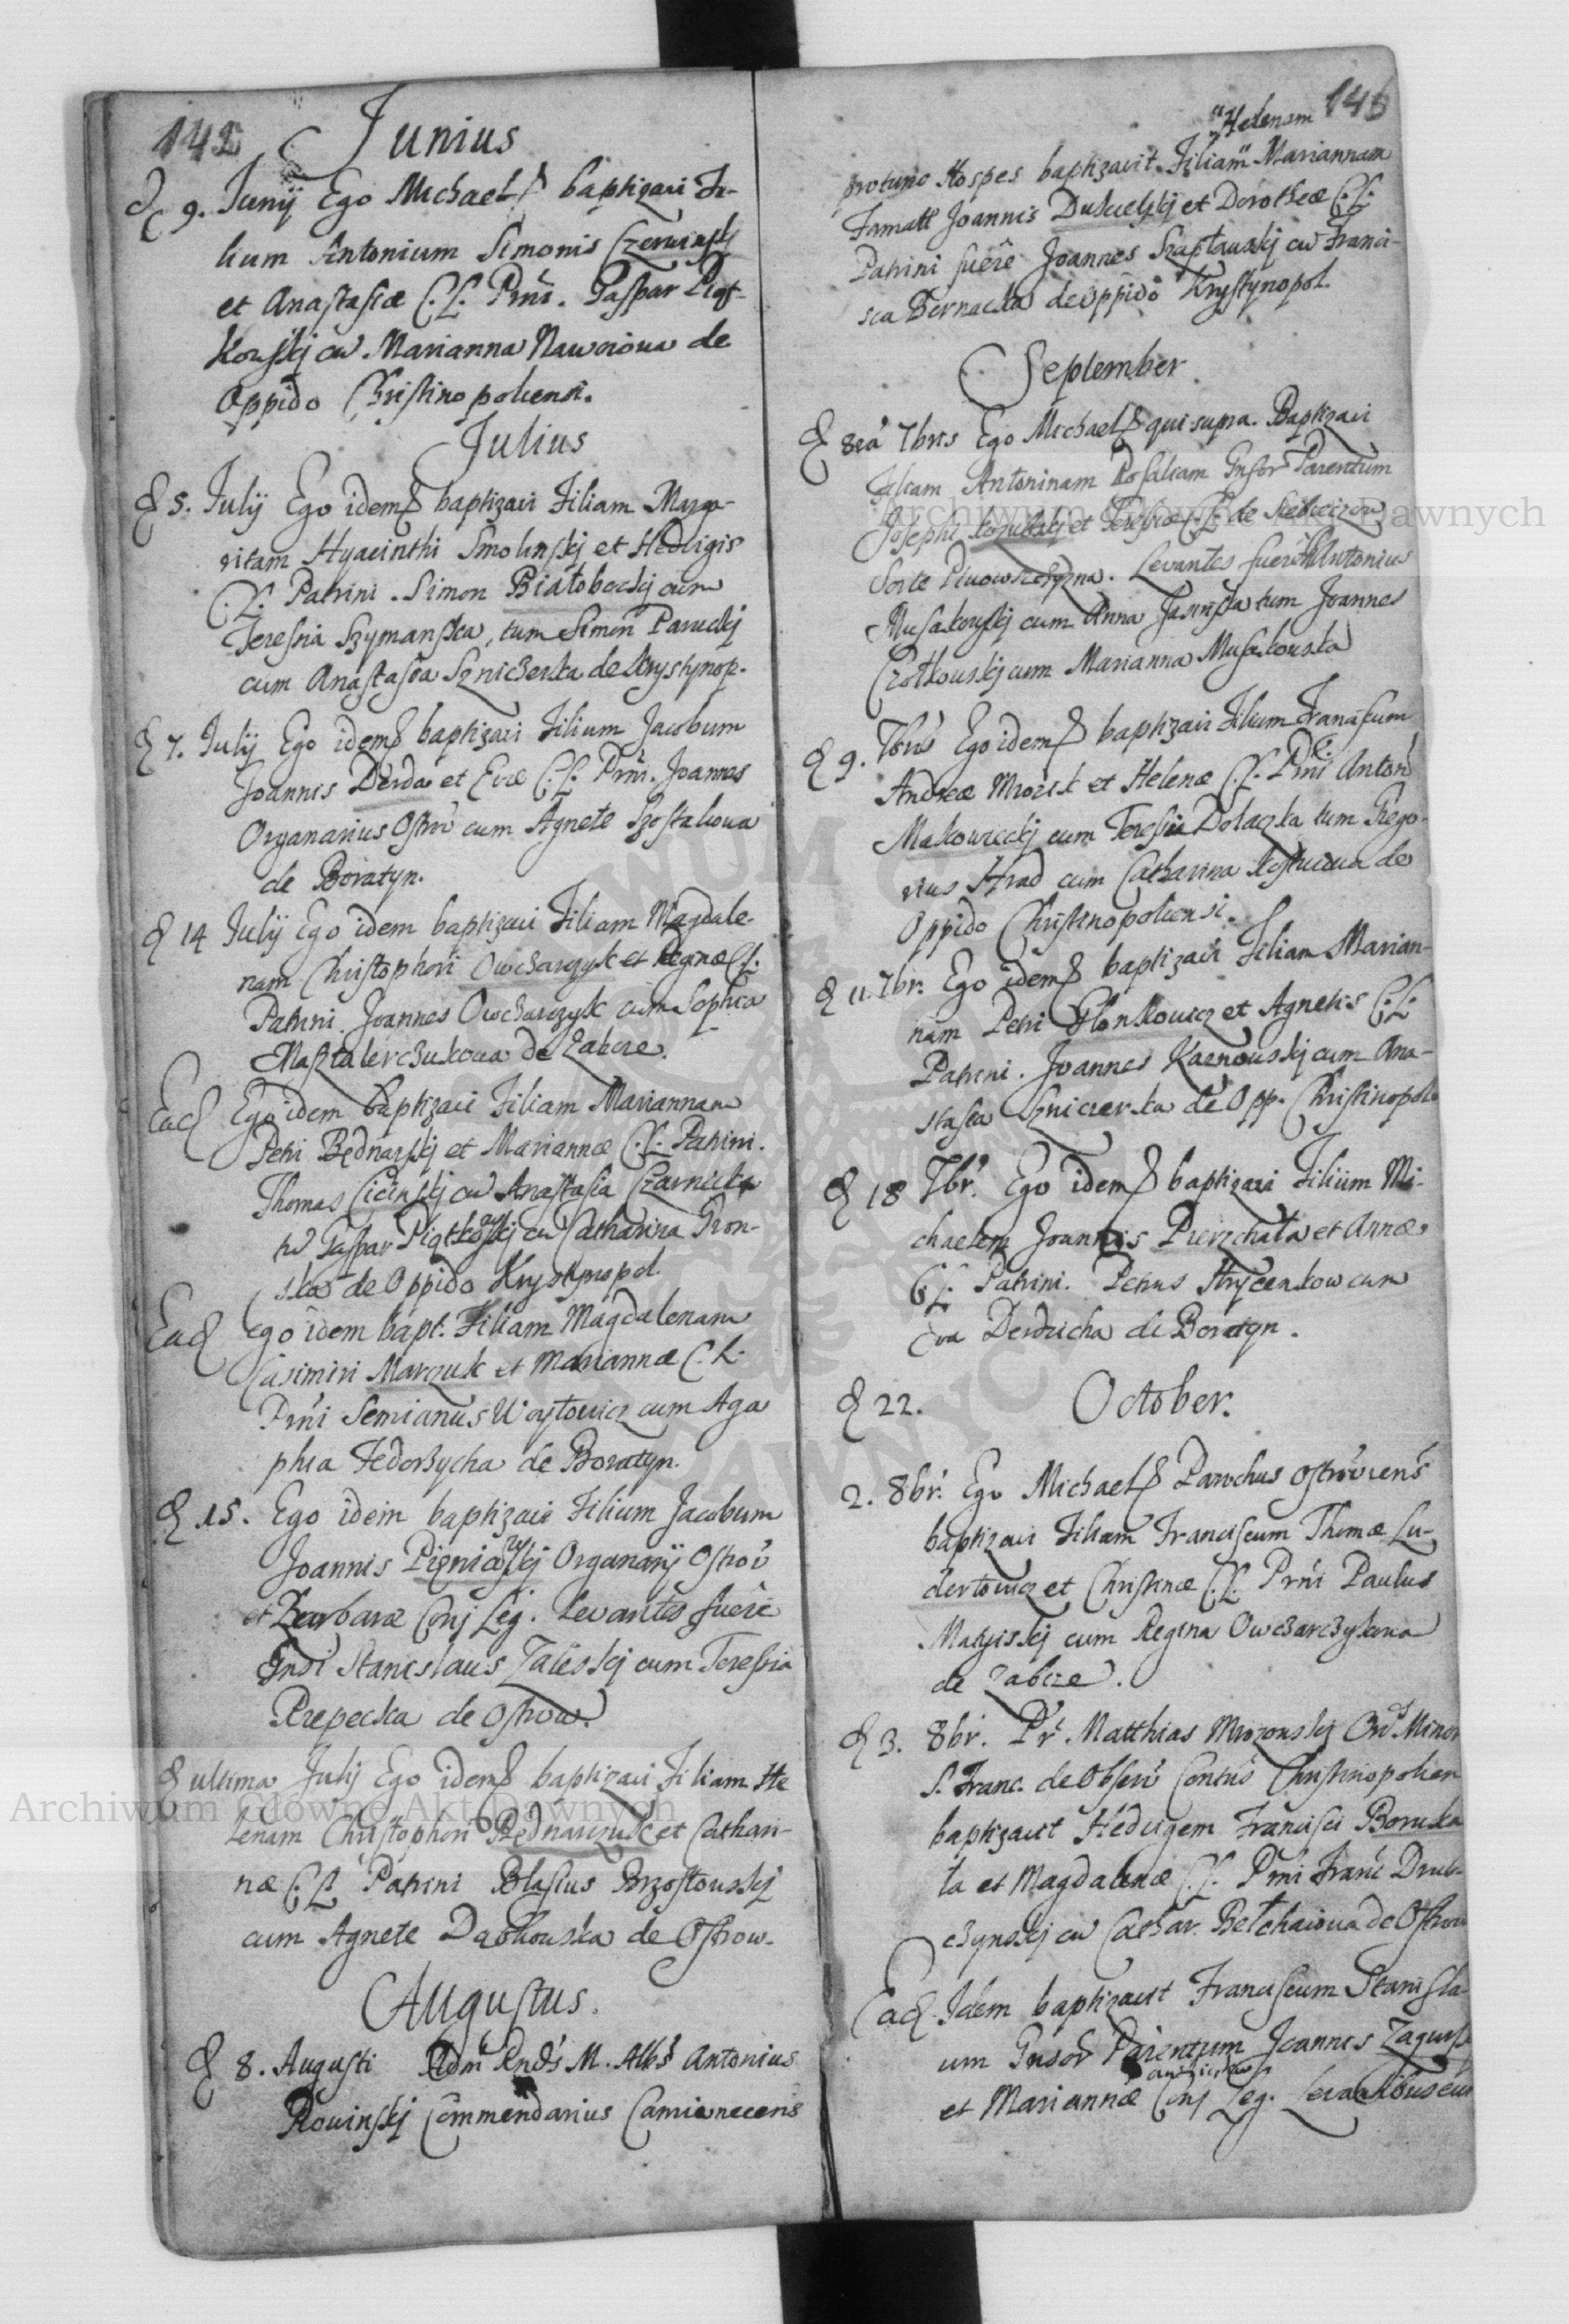 142 Junius
9. Junij Ego Michael baptizavi Fi-
lium Antonium Simonis Czerwinskj
et Anastasiæ C. L. Prni. Gaspar Piąt-
kowskj cu Marianna Nawoiowa de
Oppido Christinopoliensi.
Julius
5. Julij Ego idem baptizavi Filiam Marga-
ritam Hyacinthi Smolinskj et Hedvigis
C. L. Patrini. Simon Białobockj cum
Teressia Szymanska, tum Simon Paruckj
cum Anastasia Szniczerka de Krystynop.
7. Julij Ego idem baptizavi Filium Jacobum
Joannis Derda et Evæ C. L. Prni. Joannes
Organarius Ostro cum Agnete Szostakowa
de Boratyn.
14 Julij Ego idem baptizavi Filiam Magdale-
nam Christophori Owcharczyk et Reginæ C. L.
Patrini. Joannes Owcharczyk cum Sophia
Masztalerczukowa de Zabcze.
Ead Ego idem baptizavi Filiam Mariannam
Petri Będnarskj et Mariannæ C. L. Patrini.
Thomas Cicinskj cu Anastasia Czarnicka
tu Gaspar Piątkowskj cu Catharina Gron-
ska de Oppido Krystynopol.
Ead Ego idem bapt. Filiam Magdalenam
Casimiri Marczuk et Mariannæ C. L.
Prni Semianus Woytowicz cum Aga
phia Fedorzycha de Boratyn.
15. Ego idem baptizavi Filium Jacobum
Joannis Organarij Ostrov
et Barbaræ Conj Leg. Levantes fuere
Gnsi Stanislaus Zaleskj cum Teressia
Przepecka de Ostrow.
ultima Julij Ego idem baptizavi Filiam He
lenam Christophori Bednarczuk et Cathari-
næ C. L. Patrini Blasius Brzostowskj
cum Agnete Dąbkowska de Ostrow.
Augustus.
8. Augusti Adm Rnds M. Albs Antonius
Rowinskj Commendarius Camionecens
146
Helenam
protunc Hospes baptizavit Filiam Mariannam
Joannis et Dorotheæ C. L.
Patrini fuere Joannes Szaptawskj cu Franci-
sca Bernacka de oppido Krystynopol.
September
8va 7bris Ego Michael qui supra. Baptizavi
Filiam Antoninam Rosaliam Gnsor Parentum
Josephi et Teressiæ C. L. de
Sorte. Levantes fuere Antonius
Musakowskj cum Anna Jasinska tum Joannes
Czołkowskj cum Marianna Musakowska
9. 7bris Ego idem baptizavi Filium Franciscum
Andreæ Mrozek et Helenæ C. L. Prni Anton
Makowieckj cum Teressia Dolaczka tum Grego-
rius Hrad cum Catharina de
Oppido Christinopoliensi.
11. 7br. Ego idem baptizavi Filiam Marian-
nam Petri et Agnetis C. L.
Patrini. Joannes cum Ana-
stasia Sznicerka de Opp. Christinopol
18 7br. Ego idem baptizavi Filium Mi-
chaelem Joannis Pierzchała et Annæ
C. L. Patrini. Petrus Hrycenkow cum
Eva Derdzicha de Boratyn.
22. October.
2. 8br. Ego Michael Parochus Ostroviens
baptizavi Filium Franciscum Thomæ Lu-
dertowicz et Christinæ C. L. Prni Paulus
Matyiskj cum Regina Owczarczykowa
de Zabcze.
3. 8br. Pr Matthias Mrozowskj Ord Minor
S. Franc. de Observ Contus Christinopolien
baptizavit Hedvigem Francisci Boruka
la et Magdalenæ C. L. Prni Franc Drub-
czynskj cu Cathar. Bełchaiowa de Ostrow
Ead Idem baptizavit Franciscum Stanisla-
um Gnsor Parentum Joannis
et Mariannæ Conj Leg. Levantibus eum
Archiwum Główne Akt Dawnych
Archiwum Główne Akt Dawnych